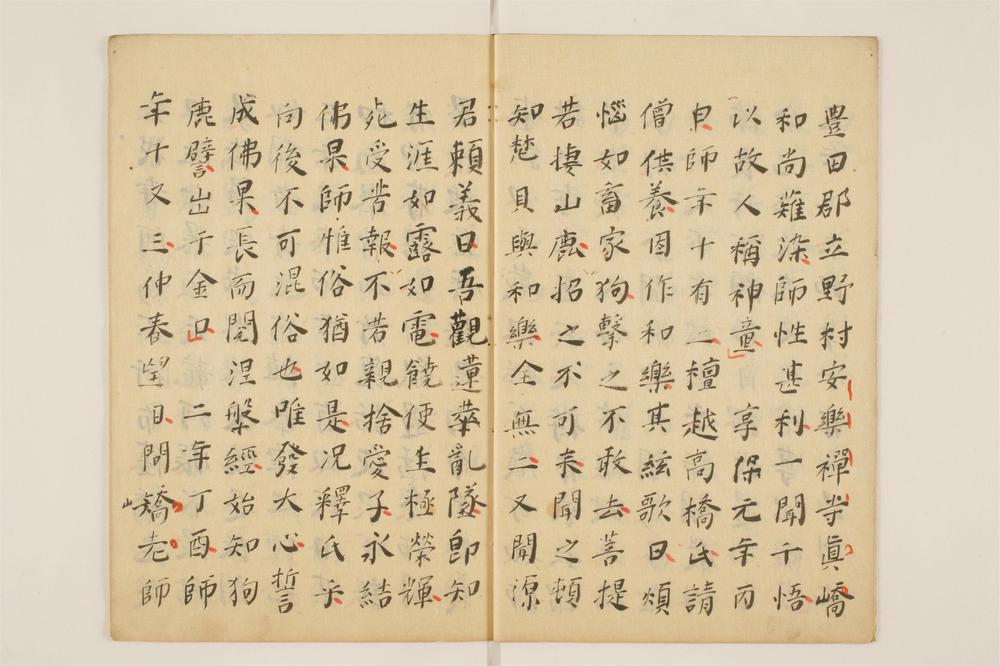 豊田郡立野村安樂禪寺眞嶠
和尚薙染師性甚利一聞千悟
以故人稱神童享保元年丙
申師年十有二檀越高橋氏請
僧供養因作和樂其絃歌曰煩
惱如畜家狗擊之不敢去菩提
若捿山鹿招之不可来聞之頓
知楚貝與和樂全無二又聞源
君頼義曰吾觀蓮華亂墜即知
生涯如露如電饒便生極榮輝
死受苦報不若親捨愛子永結
佛果師惟俗猶如是况釋氏乎
向後不可混俗也唯發大心誓
成佛果長而閲涅槃經始知狗
鹿譬出于金口二年丁酉師
年十又三仲春望日問嶠老師